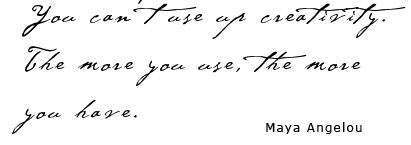 You can't use up creativity.
The more you use, the more
you have.
Maya Angelou